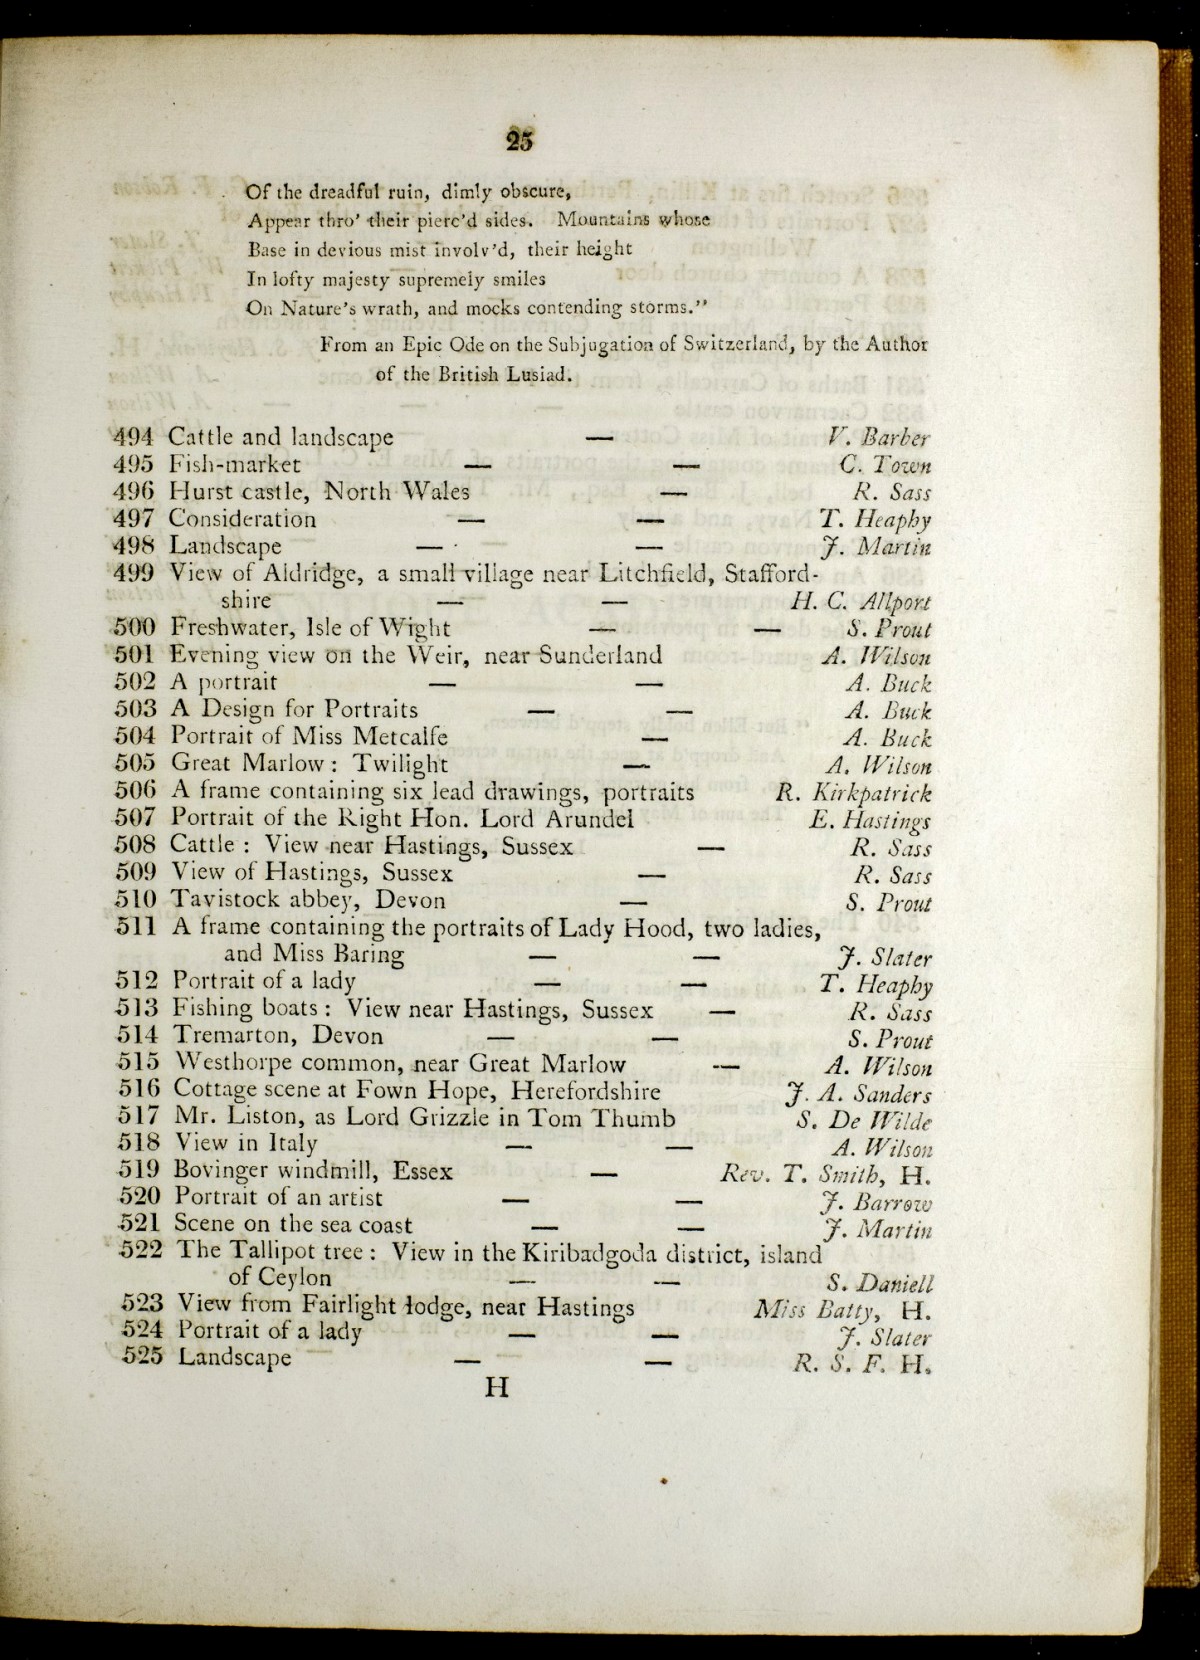 25
Of the dreadful ruin, dimly obscure,
Appear thro' their pierc'd sides. Mountains whose
Base in devious mist involv'd, their height
In lofty majesty supremely smiles
On Nature's wrath, and mocks contending storms."
From an Epic Ode on the Subjugation of Switzerland, by the Author
of the British Lusiad.
494 Cattle and landscape — V. Barber
495 Fish-market — — C. Town
496 Hurst castle, North Wales — R. Sass
497 Consideration — — T. Heaphy
498 Landscape — — J. Martin
499 View of Aldridge, a small village near Litchfield, Stafford-
shire — — H. C. Allport
500 Freshwater, Isle of Wight — — S. Prout
501 Evening view on the Weir, near Sunderland A. Wilson
502 A portrait — — A. Buck
503 A Design for Portraits — — A. Buck
504 Portrait of Miss Metcalfe — A. Buck
505 Great Marlow: Twilight — A. Wilson
506 A frame containing six lead drawings, portraits R. Kirkpatrick
507 Portrait of the Right Hon. Lord Arundel E. Hastings
508 Cattle: View near Hastings, Sussex — R. Sass
509 View of Hastings, Sussex — R. Sass
510 Tavistock abbey, Devon — S. Prout
511 A frame containing the portraits of Lady Hood, two ladies,
and Miss Baring — — J. Slater
512 Portrait of a lady — — T. Heaphy
513 Fishing boats: View near Hastings, Sussex — R. Sass
514 Tremarton, Devon — — S. Prout
515 Westhorpe common, near Great Marlow — A. Wilson
516 Cottage scene at Fown Hope, Herefordshire J. A. Sanders
517 Mr. Liston, as Lord Grizzle in Tom Thumb S. De Wilde
518 View in Italy — — A. Wilson
519 Bovinger windmill, Essex — Rev. T. Smith, H.
520 Portrait of an artist — — J. Barrow
521 Scene on the sea coast — — J. Martin
522 The Tallipot tree: View in the Kiribadgoda district, island
of Ceylon — — S. Daniell
523 View from Fairlight lodge, near Hastings Miss Batty, H.
524 Portrait of a lady — — J. Slater
525 Landscape — — R. S. F. H.
H